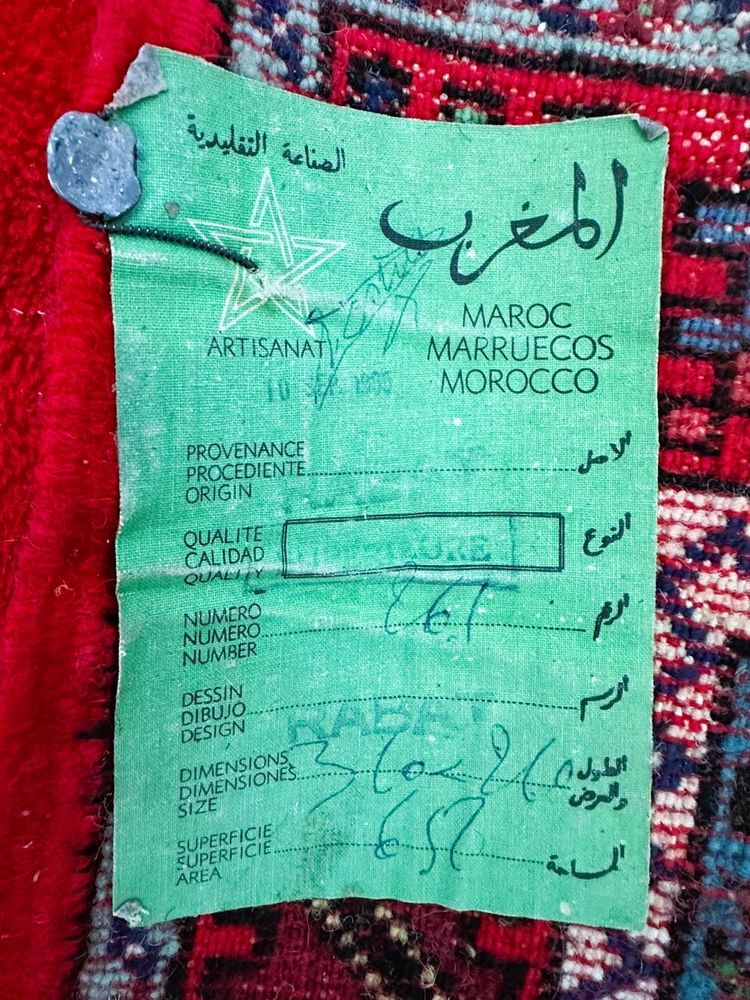 الصناعة التقليدية
المغرب
MAROC
MARRUECOS
MOROCCO
ARTISANAT
PROVENANCE
PROCEDIENTE
ORIGIN
الاصل
QUALITE
CALIDAD
QUALITY
النوع
NUMERO
NUMERO
NUMBER
861
الرقم
DESSIN
DIBUJO
DESIGN
RABAT
الرسم
DIMENSIONS
DIMENSIONES
SIZE
الطول
والعرض
SUPERFICIE
SUPERFICIE
AREA
المساحة